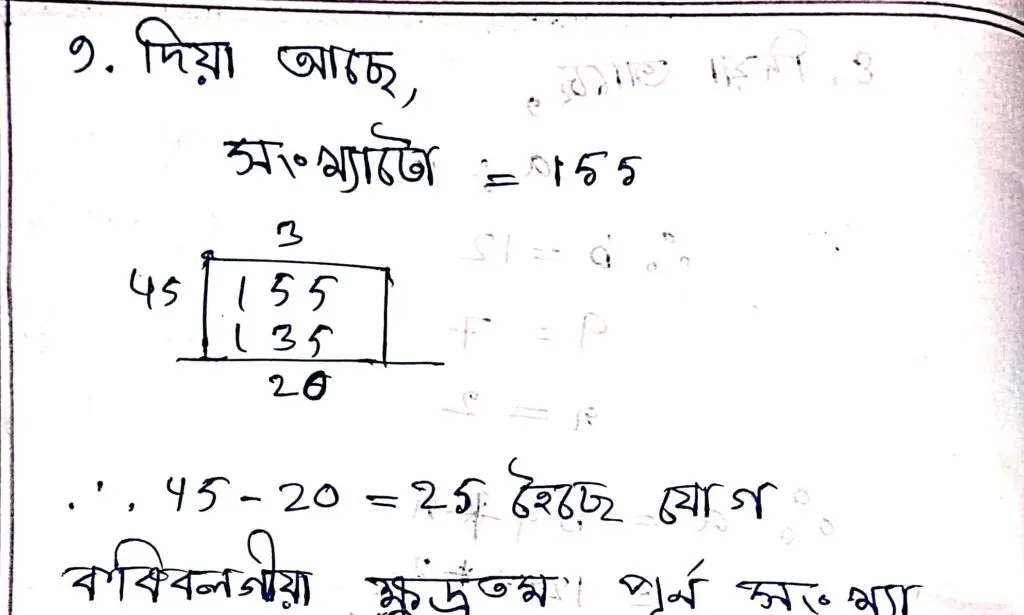 9. দিয়া আছে,
সংখ্যাটো = 155
3
45 155
135
20
∴ 45 - 20 = 25 হৈছে যোগ
কৰিবলগীয়া ক্ষুদ্ৰতম পূৰ্ন সংখ্যা